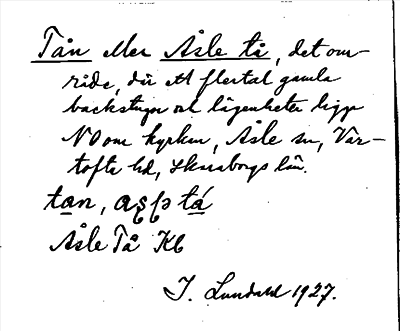 Tån eller Åsle tå, det om-
råde, där ett flertal gamla
backstugor och lägenheter ligga
NO om kyrkan, Åsle sn, Var-
tofta hd, Skaraborgs län.
tan, tá
Åsle Tå Kb
I. Lundahl 1927.